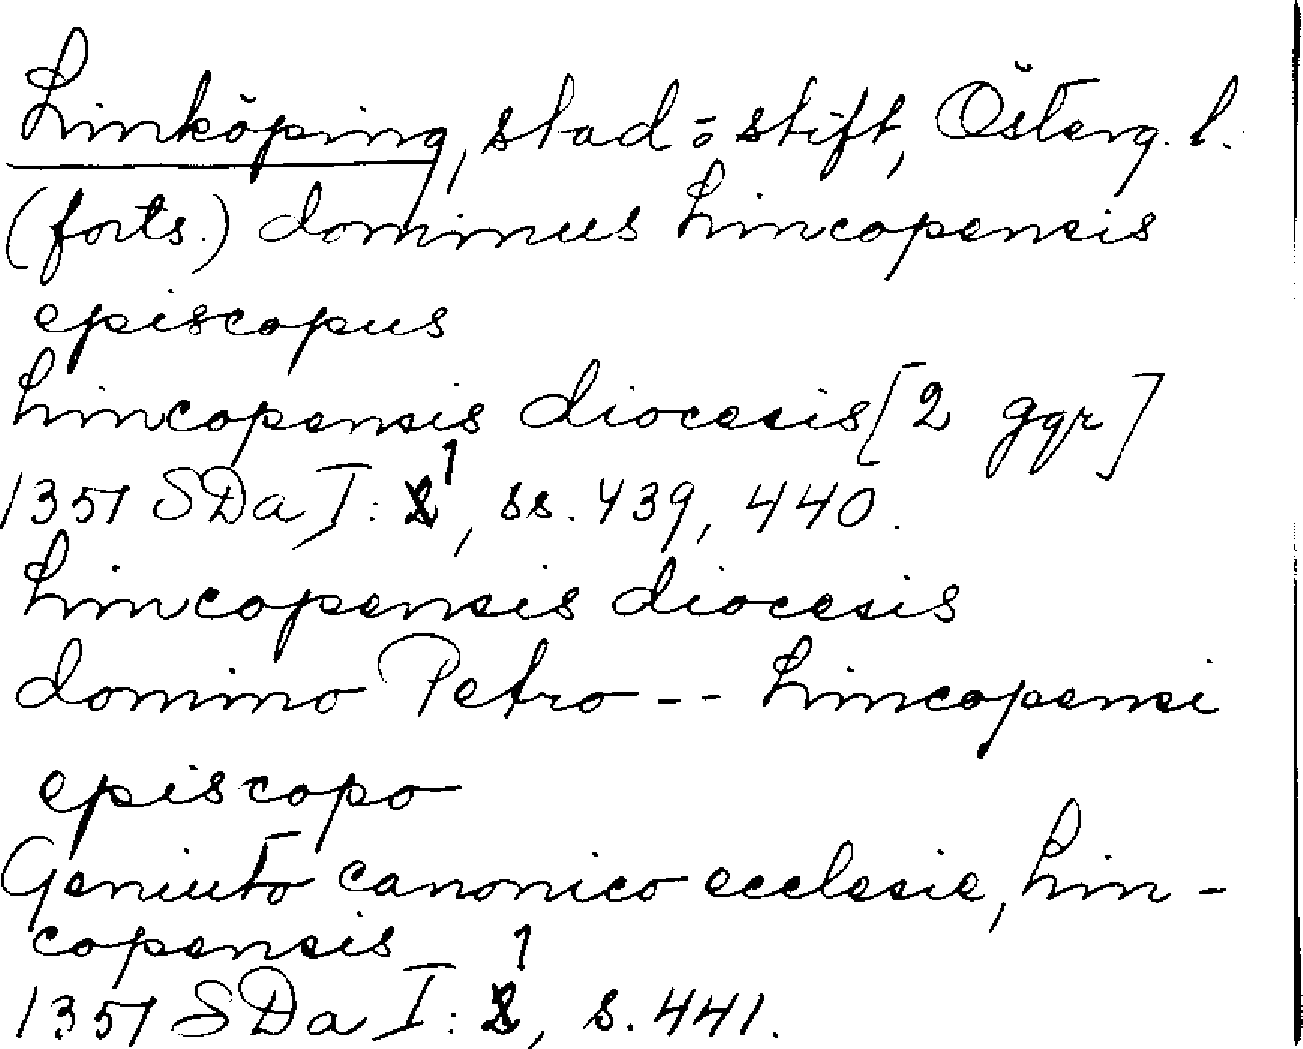 Linköping, stad o stift, Österg. l.
(forts.) dominus Lincopensis
episcopus
Lincopensis diocesis [2 ggr]
1351 SDa I: 1, ss. 439, 440.
Lincopensis diocesis
domino Petro -- Lincopensi
episcopo
canonico ecclesie, Lin-
copensis
1351 SDa I: 1, s. 441.